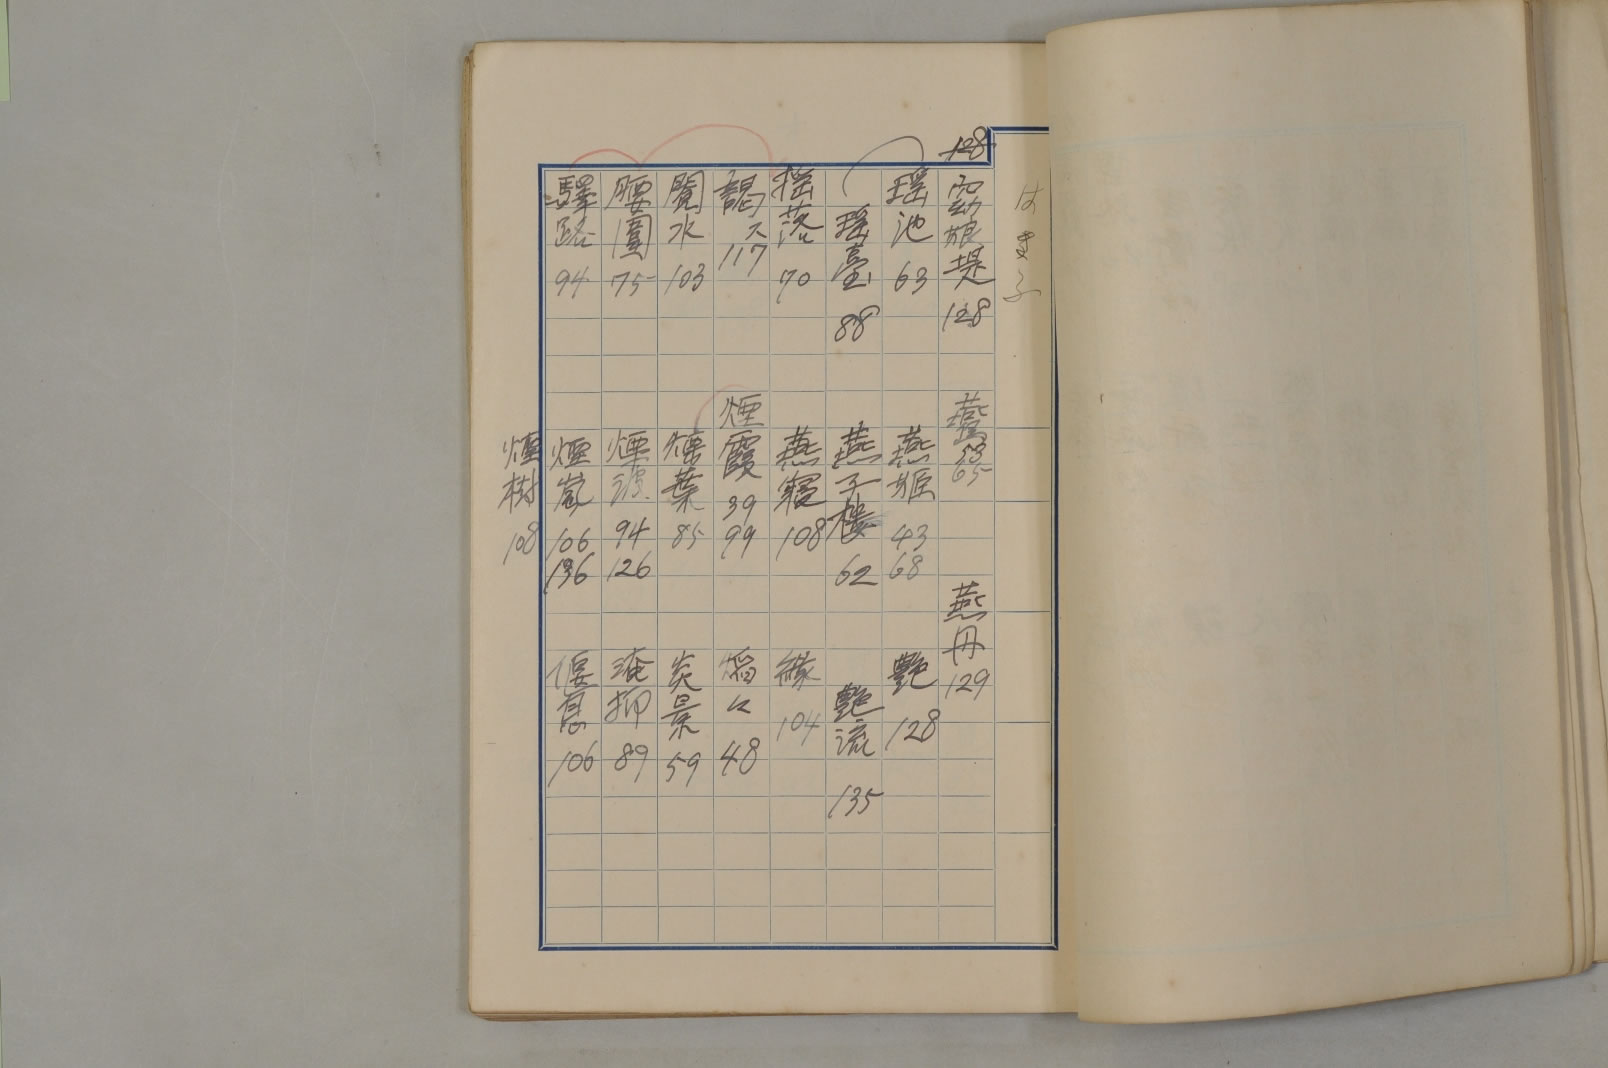 128
窈娘堤 128
瑶池 63
瑶臺 88
揺落 70
謁ス 117
閲水 103
腰圍 75
驛路 94
燕 65
燕姫 43 68
燕子楼 62
燕寝 108
煙霞 39 99
煙葉 85
煙波 94 126
煙嵐 106 136
煙樹 108
燕丹 129
艶 128
艶流 135
緣 104
焔々 48
炎景 59
淹抑 89
偃息 106